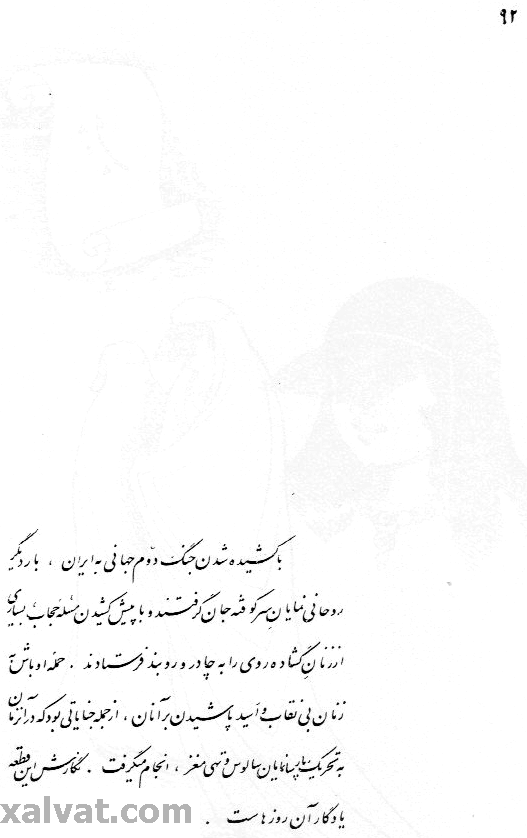 ۹۲
با کشیده شدن جنگ دوّم جهانی به ایران ، بار دیگر
روحانی نمایان سرکوفته جان گرفتند و با پیش کشیدن مسئلهٔ حجاب بسیاری
از زنانِ گشاده روی را به چادر و روبند فرستادند . حملهٔ اوباش به
زنان بی نقاب و اسید پاشیدن بر آنان ، از جمله جنایاتی بود که در آن زمان
به تحریک پارسانمایان سالوس و تهی مغز ، انجام میگرفت . نگارش این قطعه
یادگار آن روزهاست .
xalvat.com